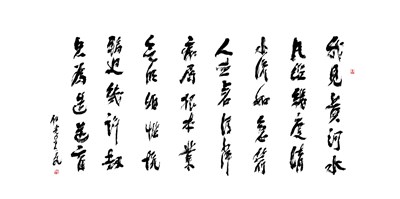 我見黃河水
凡經幾度清
水流如急箭
人世若浮萍
癡屬根本業
無明煩惱坑
輪迴幾許劫
為造迷盲